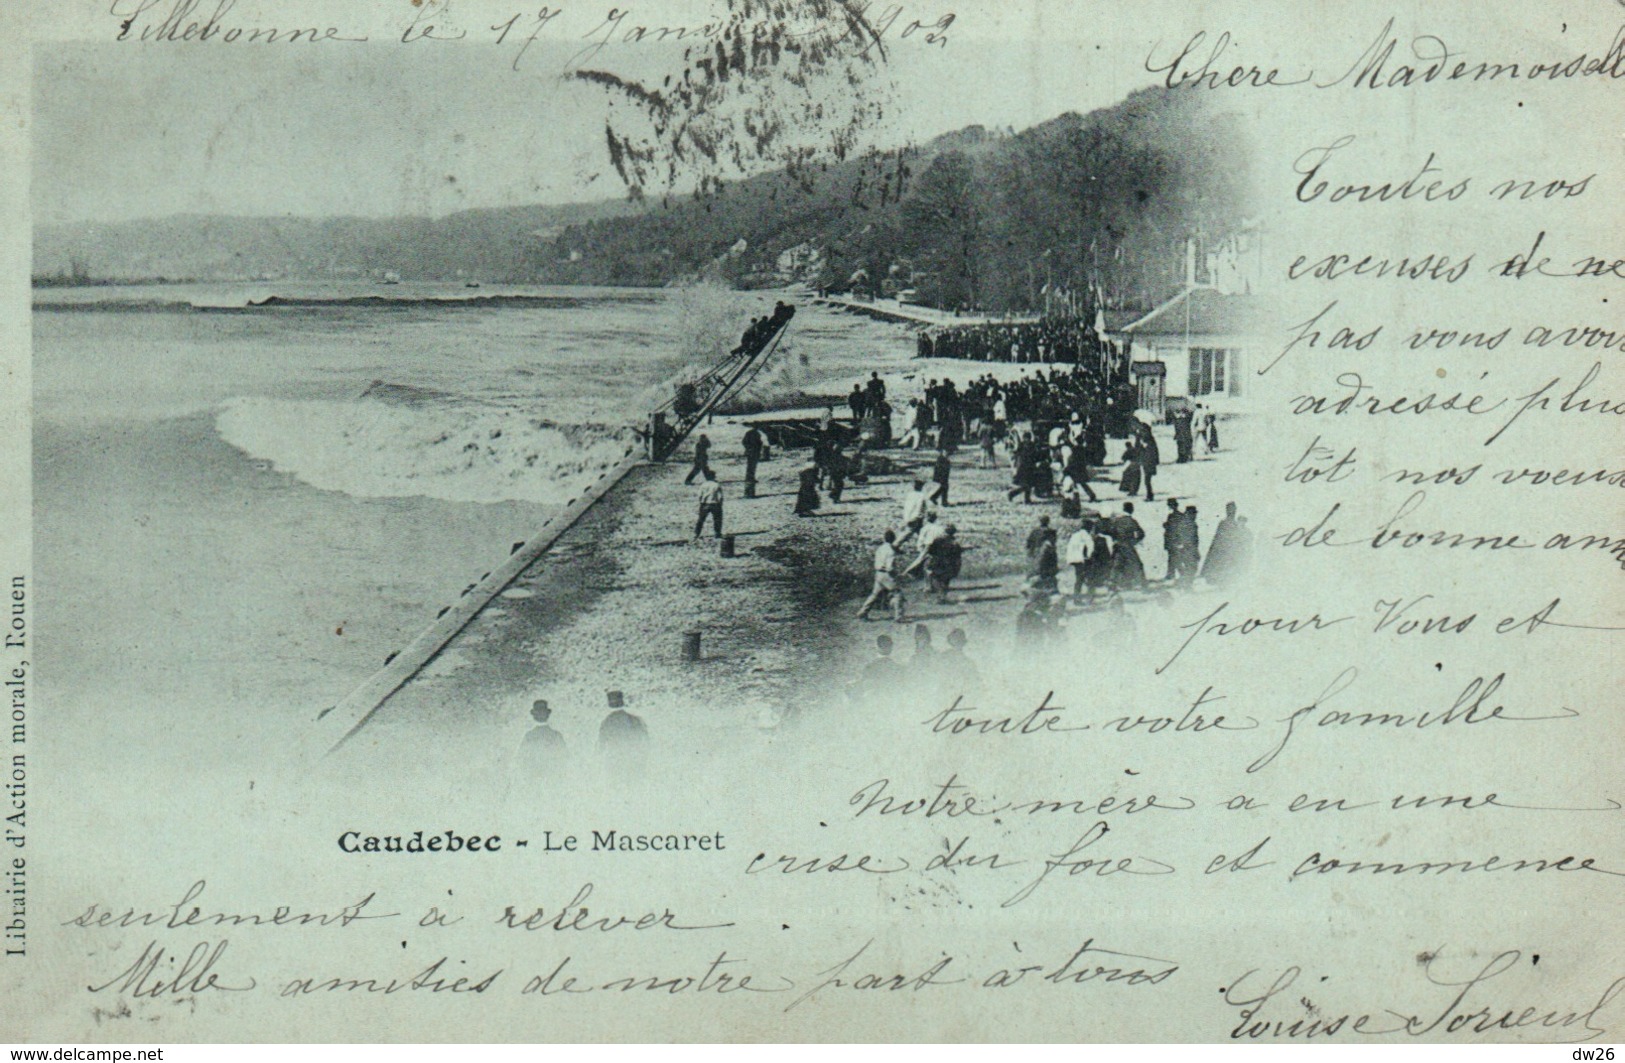 Lillebonne le 17 Janvier 1902
Chere Mademoiselle
Toutes nos
excuses de ne
pas vous avoir
adressé plus
tôt nos voeux
de bonne ann
pour Vous et
toute votre famille
Notre mère a eu une
crise du foie et commence
seulement à relever.
Mille amitiés de notre part à tous
Louise Sorieul
Caudebec - Le Mascaret
Librairie d'Action morale, Rouen
www.delcampe.net
dw26